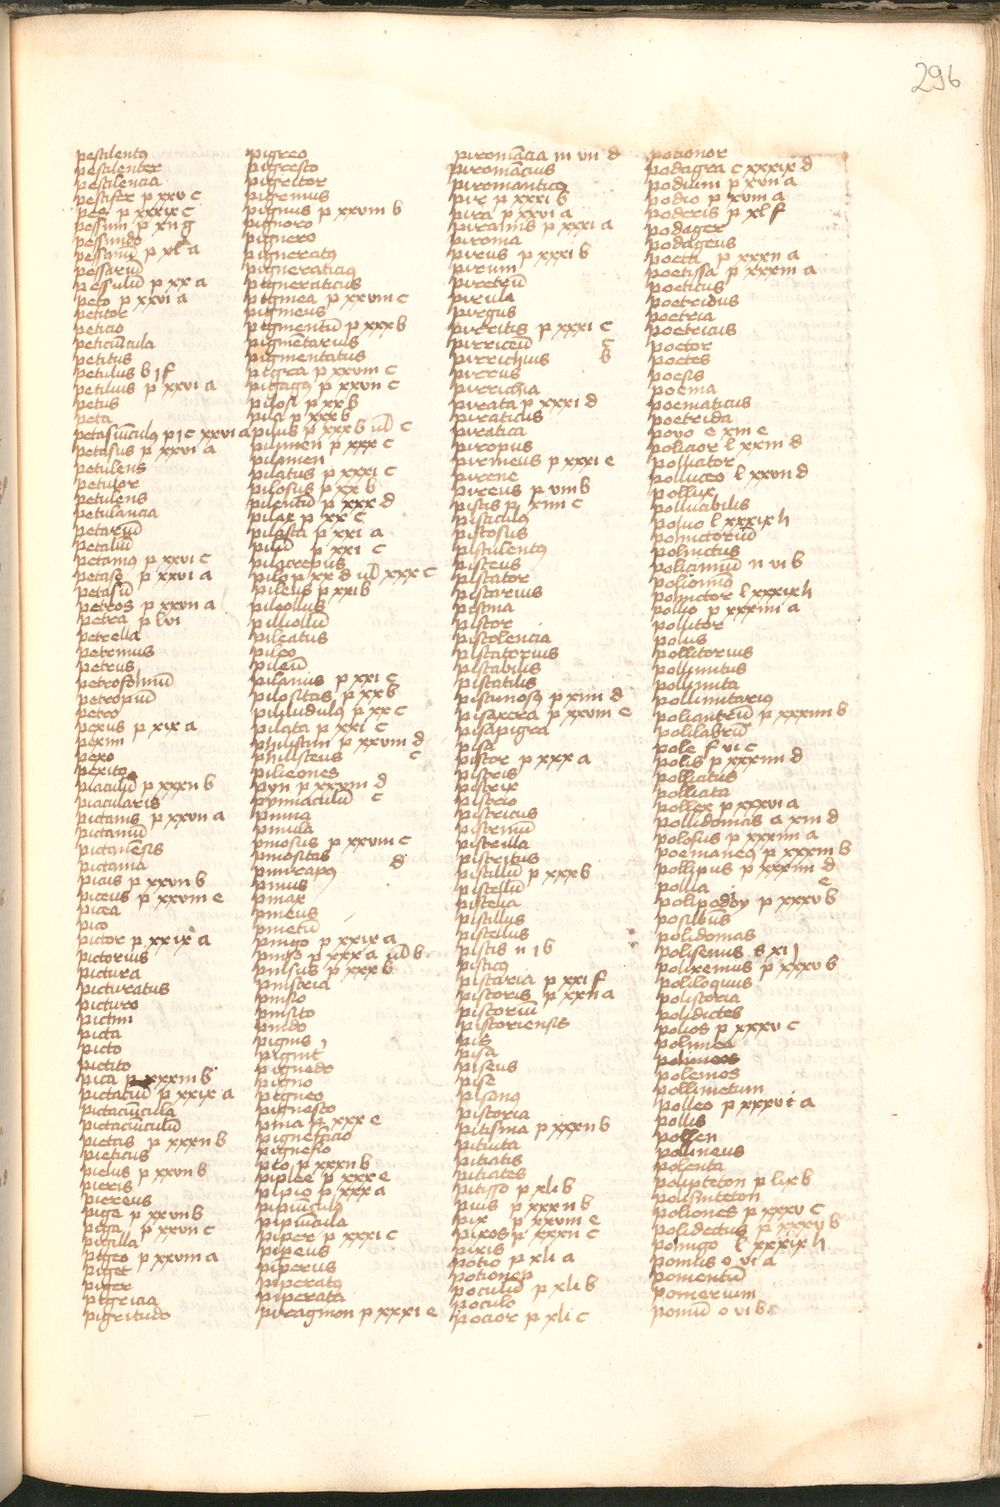 296
pestilentꝰ
pestilenter
pestilencia
pestifer p xxv c
pes p xxxix c
pessum p xii g
pessundo
pessarium
pessulū p xx a
peto p xxvi a
petitor
peticio
peticiūcula
petitus
petulus b j f
petilius p xxvi a
petus
peta
petasiūculꝰ p j c xxvi a
petasus p xxvi a
petulens
petulor
petulens
petulancia
petariū
petaliū
petamꝰ p xxvi c
petaso p xxvi a
petasū
petros p xxvii a
petra p lvi
petrella
petremus
petrus
petrosolinū
petropiū
petro
pexus p xix a
pexim
pexo
pexitas
piaculū p xxxii b
piacularis
pictanis p xxvii a
pictaniū
pictanēsis
pictania
picus p xxvii b
piceus p xxviii e
picea
pico
pictor p xxix a
pictorius
pictura
picturatus
picturo
pictim
picta
picto
pictito
pica p xxxiii b
pictaciū p xxix a
pictaciūcula
pictaciūculū
pietas p xxxii b
pieticus
pielus p xxvii b
pieris
piereus
piga p xxvii b
piga p xxvii c
pigilla
pigeo p xxviii a
piget
piger
pigricia
pigritudo
pigreo
pigresco
pigritor
pigremus
pignus p xxviii b
pignoro
pignero
pigneratꝰ
pigneraticiꝰ
pigneraticus
pigmea p xxviii c
pigmeus
pigmentū p xxx b
pigmētarius
pigmentatus
pigra p xxviii c
pitagꝰ p xxvii c
pilosi p xx b
pila p xxx b
pilus p xxx b ul' c
pilimen p xxx c
pilamen
pilatus p xxxi c
pilosus p xx b
pilentū p xxx d
pilax p xx c
pilasta p xxi a
pilū p xxi c
pilocrepus
pilo p xx d ul' xxx c
pileus p xxi b
pileollus
pilliollū
pileatus
pileo
pileū
pilanus p xxi c
pilositas p xx b
piliudulꝰ p xx c
pilata p xxi c
philistiim p xxviii d
phillsteus c
pilieones
pyn p xxxiii d
pynnaculū c
pinna
pinnula
pinosus p xxviii c
pinositas
pinnirapꝰ d
pinus
pinax
pineus
pinetū
pingo p xxix a
pinso p xxx a ul' b
pinsus p xxx b
pinsria
pinsio
pinsito
pindo
pignis
pignit
pignedo
pigno
pigneo
pignesco
pina p xxx e
pignefacio
pignefio
pio p xxxii b
piplee p xxx e
pipio p xxx a
pipiūculꝰ
pipiūcula
piper p xxxi c
pipeus
piperus
piperatꝰ
piperata
piragmon p xxxi e
piromācia in vii d
piromācius
piromanticꝰ
pir p xxxi b
pira p xxvi a
piramis p xxxi a
piroma
pirus p xxxi b
pirum
piretrū
pirula
pirgus
pirritis p xxxi c
pirriceū c
pirrichius b
pirrus
pirrichia
pirata p xxxi d
piraticus
piratica
piropus
pirineus p xxxi e
pirene
pireus p viii b
piscis p xiiii c
pisciculꝰ
piscosus
pisculentꝰ
pisceus
piscator
piscarius
piscina
piscor
piscolencia
piscatorius
piscabilis
piscatilis
piscinosꝰ p xiiii d
pisaxera p xxviii e
pisapigra
pisa
pistor p xxx a
pistris
pistrix
pistrio
pistricus
pistrinū
pistrilla
pistritus
pistillū p xxx b
pistellū
pistella
pistillus
pistellus
pistis n j b
pisticꝰ
pistaria p xxi f
pistoris p xxii a
pistoriū
pistoriensis
pis
pisa
piseus
pise
pisanꝰ
pistoria
pitisma p xxxii b
pituita
pitiatis
pitiates
pitisso p xli b
pius p xxxii b
pix p xxviii e
pixos p xxxii c
pixis
potio p xli a
potionen
poculū p xli b
poculo
pocior p xli c
potionor
podagra c xxxix d
podium p xvii a
podio p xviii a
poderis p xl f
podager
podageus
poeta p xxxii a
poetissa p xxxiii a
poeticus
poetridus
poetria
poetricus
poetor
poetes
poesis
poema
poematicus
poetrida
poyo e xiii e
policior l xxiii d
pollicitor
polluceo l xxvii d
pollux
pollucibilis
poluo l xxxix h
polinctoriū
polinctus
policiniū n vi b
polionimꝰ
polinctor l xxxix h
pollio p xxxiiii a
pollitor
polus
pollitorius
pollinitus
pollinita
pollinitariꝰ
poliantrū p xxxiiii b
polilabrū
pole f vi c
polis p xxxiiii d
pollicitus
pollicita
pollex p xxxvi a
pollidomas a xiii d
polosus p xxxiiii a
poemaneꝰ p xxxiii b
pollipus p xxxiiii d
pollia e
polipodoy p xxxv b
posibūs
polidomas
polisenus s xi j
polixemius p xxxv b
poliloquus
polistoria
polidictes
polios p xxxv c
polimea
polineos
polemos
pollimetum
polleo p xxxvi a
pollis
pollen
pollineus
polenta
polipteton p lix b
polisinteton
poliones p xxxv c
polidectus p xxxv b
polingo l xxxix h
pomus o vi a
pomentū
pomerium
pomū o vi b